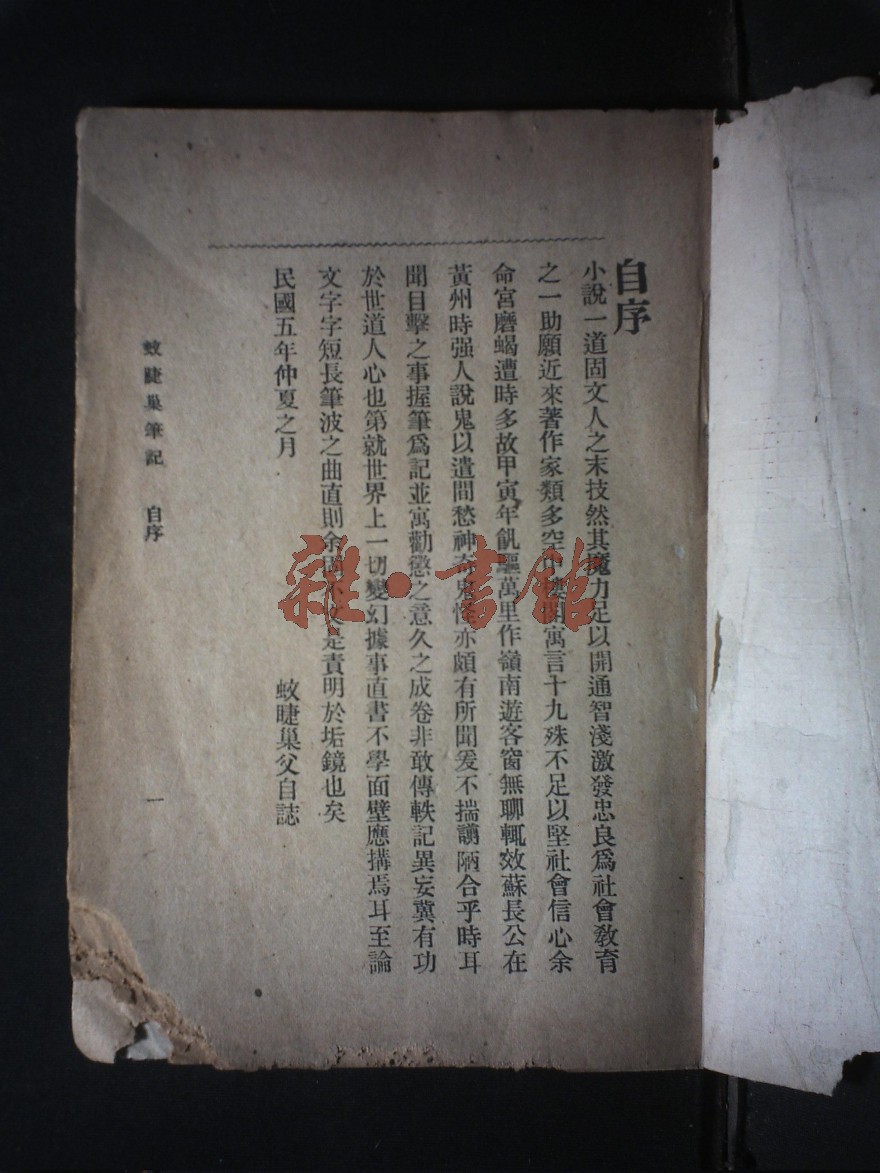 自序
小說一道固文人之末技然其魔力足以開通智淺激發忠良爲社會教育
之一助願近來著作家類多空中樓閣寓言十九殊不足以堅社會信心余
命宮磨蝎遭時多故甲寅年飢驅萬里作嶺南遊客窗無聊輒效蘇長公在
黃州時强人說鬼以遣間愁神奇鬼怪亦頗有所聞爰不揣謭陋合乎時耳
聞目擊之事握筆爲記並寓勸懲之意久之成卷非敢傳軼記異妄冀有功
於世道人心也第就世界上一切變幻據事直書不學面壁應搆焉耳至論
文字字短長筆波之曲直則余固不文是責明於垢鏡也矣
民國五年仲夏之月 蚊睫巢父自誌
蚊睫巢筆記 自序 一
雜·書館